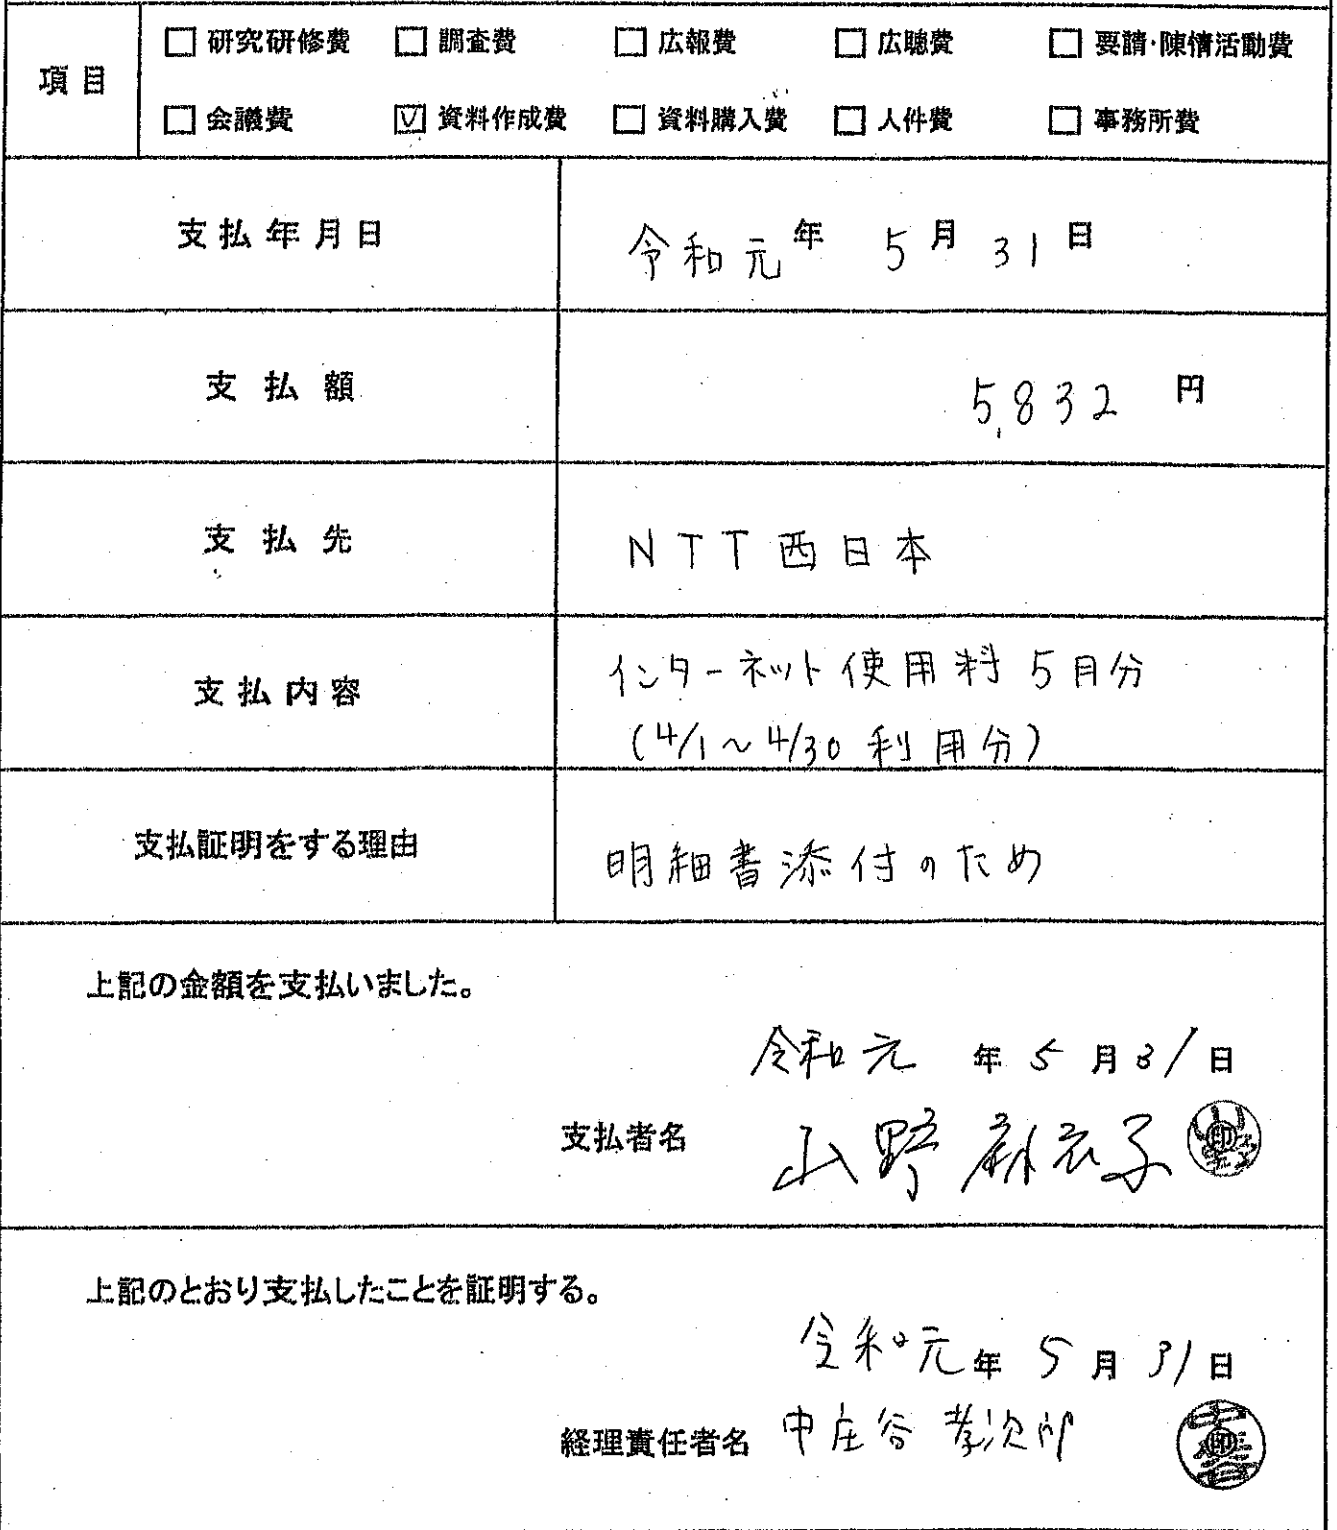 □ 研究研修費 □ 調査費 □ 広報費 □ 広聴費 □ 要請・陳情活動費
項目
□ 会議費 ☑ 資料作成費 □ 資料購入費 □ 人件費 □ 事務所費
支払年月日 令和元年 5月 31日
支払額 5,832 円
支払先 NTT西日本
支払内容 インターネット使用料 5月分
(4/1~4/30 利用分)
支払証明をする理由 明細書添付のため
上記の金額を支払いました。
令和元 年 5 月 31 日
支払者名 山野 麻衣子
上記のとおり支払したことを証明する。
令和元年 5 月 31 日
経理責任者名 中庄谷 孝次郎